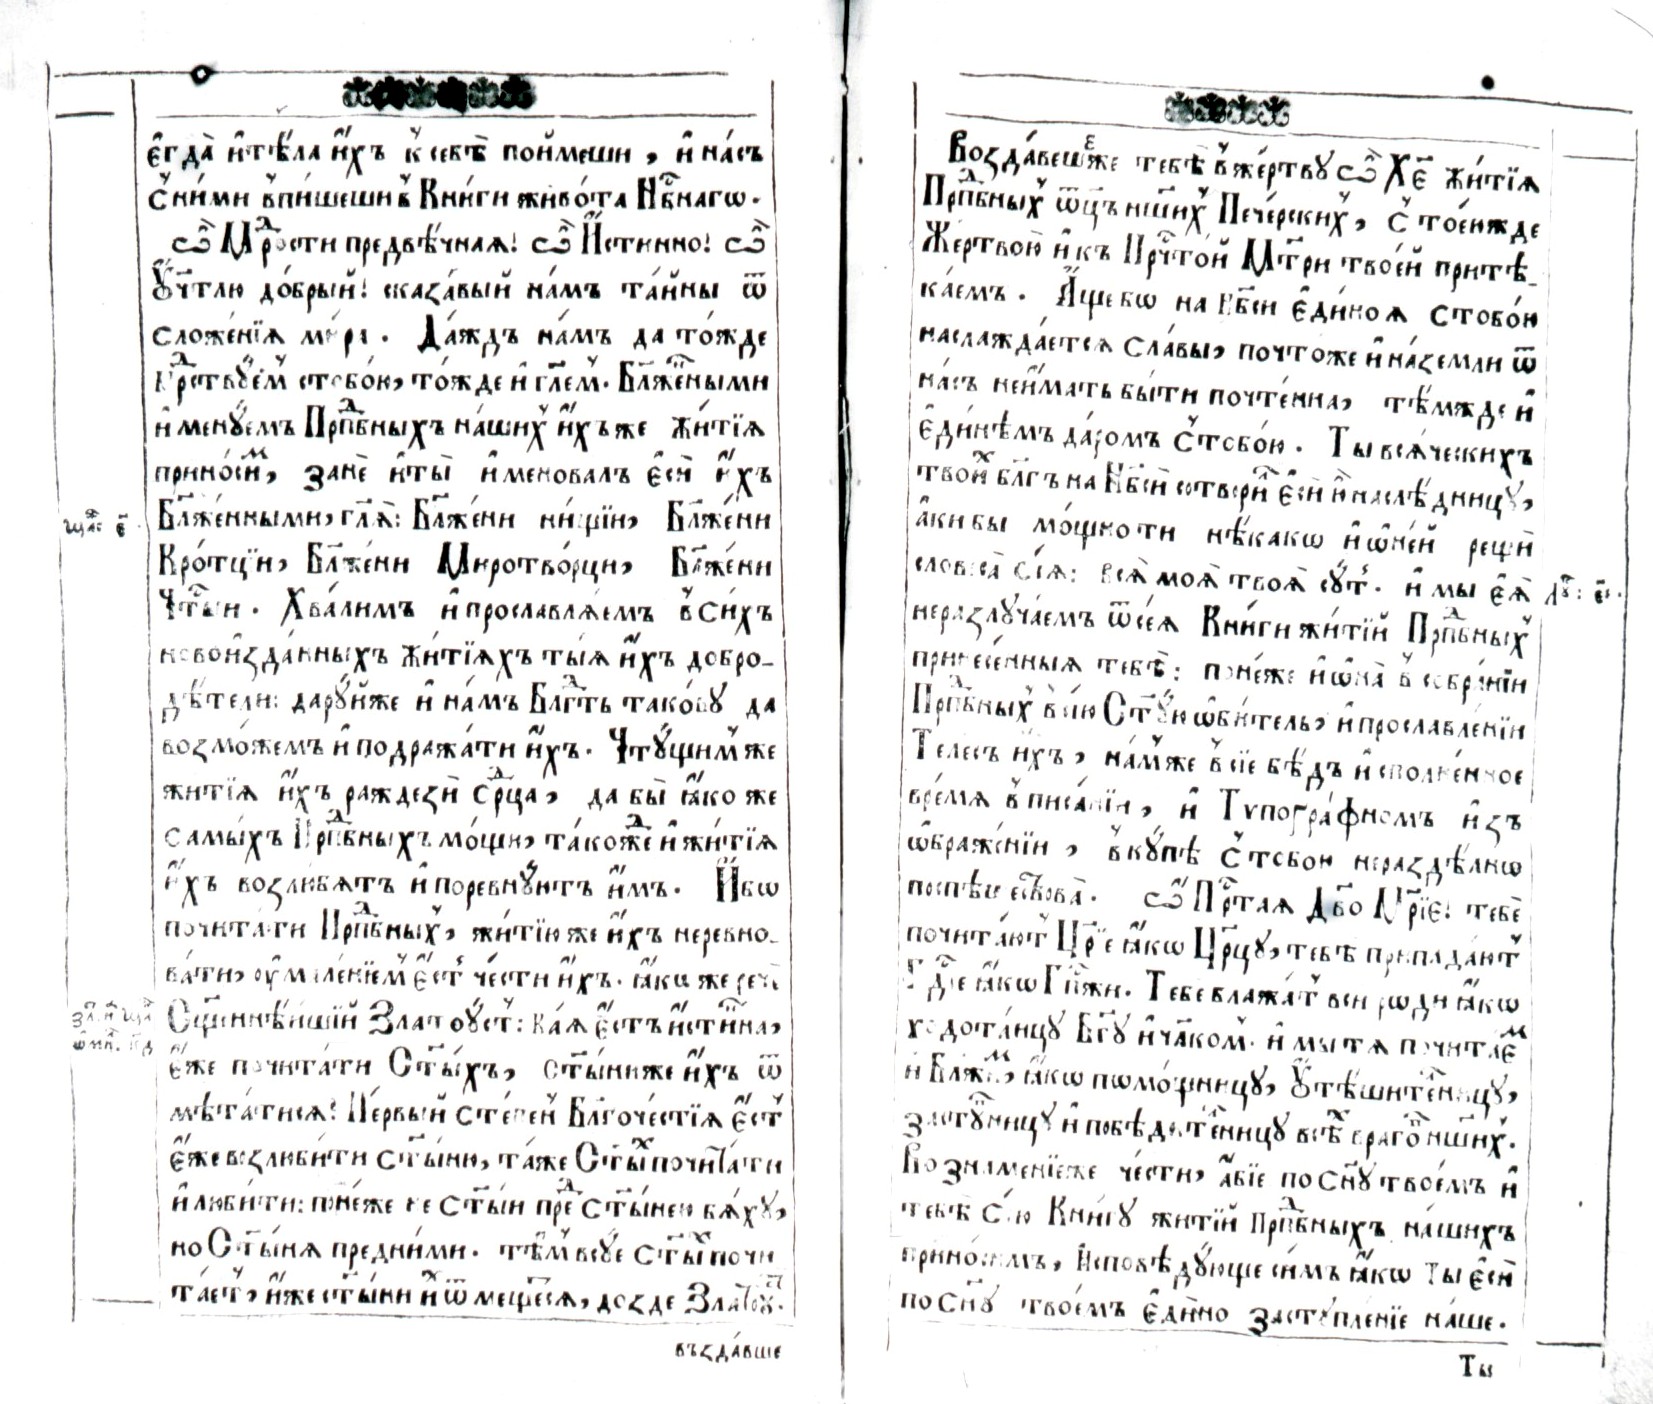 є҆гда̀ и҆тѣ́ла и҆́хъ к̾ себѣ̀ пои́меши, и҆ на́съ
с̾ни́ми в̾пи́шеши в̾ Кни́ги живо́та Нб҃наго.
ѽ Мⷣрости предвѣ́чная! ѽ И҆́стинно! ѽ
Оу҆чт҃лю до́брый! сказа́вый на́мъ та́йны ѿ
сложе́нїѧ ми́ра. Да́ждъ на́мъ да то́жде
Мⷣрствꙋ́ем̾ стобо́ю, то́жде и҆ гл҃ем̾. Бл҃же́нными
и҆менꙋ́емъ Прпⷣбныхъ на́ших̾ и҆́хъже жи́тїѧ
прино́сиⷨ, занѐ и҆ты̀ и҆меновалъ є҆сѝ и҆́хъ
Бл҃же́нными, гл҃ѧ: Бл҃же́ни ни́щїи, Бл҃же́ни
Кро́тцїи, Бл҃же́ни Миротво́рци, Бл҃же́ни
Чⷭ҇тыи. Хва́лимъ и҆прославлѧ́емъ в̾си́хъ
новои҆зда́нныхъ жи́тїѧхъ ты́ѧ и҆́хъ добро-
дѣ́тели: дарꙋ́йже и҆ на́мъ Блгⷣть тако́вꙋ да
возмо́жемъ и҆подража́ти и҆́хъ. Чтꙋ́щим̾же
жи́тїѧ и҆́хъ раждезѝ Срⷣца, да бы̀ ꙗ҆́коже
самы́хъ Прпⷣбныхъ мо́щи, та́кожⷣе и҆жи́тїѧ
и҆́хъ возлюбѧтъ и҆поревнꙋ́ютъ и҆́мъ. И҆́бо
почита́ти Прпⷣбных̾, жи́тїю же и҆́хъ неревно-
ва́ти, оу҆мале́нїем̾ є҆́ст̾ че́сти и҆́хъ. ꙗ҆́ко же речѐ
Сщ҃еннѣ́йшїй Златоꙋ́ст̾: ка́ѧ є҆́стъ и҆́стинна,
є҆́же почита́ти Ст҃ы́хъ, ст҃ы́ни же и҆́хъ ѿ
мѣта́тисѧ? Пе́рвый сте́пен̾ Бл҃гоче́стїѧ є҆́ст̾
є҆́же возлюби́ти ст҃ы́ню, та́же Ст҃ыⷯ почита́ти
и҆люби́ти: поне́же не ст҃ы́и преⷣ ст҃ы́нею бѧ́хꙋ,
но Ст҃ы́нѧ пре́дними. тѣ́м̾ всꙋ́е ст҃ыⷯ почи
та́ет̾, и҆́же ст҃ы́ни и҆ⷯ ѿмеще́тсѧ, до здѐ Златоꙋⷭ҇т.
въз̾да́вше
щаⷭ҇ є҃.
Возда́вшеже тебѣ̀ в̾же́ртвꙋ ѽ Хє҃ жи́тїѧ
Прпⷣбных̾ ѿц҃ъ нш҃их̾ Пече́рских̾, с̾ тое́южде
Же́ртвою и҆ къ Прчⷭ҇то́й Мт҃ри твое́й притѣ-
ка́емъ. А҆́щебо на Нб҃си є҆ди́ноѧ стобо́ю
наслажда́етсѧ сла́вы, почто́же и҆ на́земли ѿ
на́съ неи҆́мать бы́ти почте́нна, тѣ́мжде и҆
є҆ди́нѣмъ да́ромъ с̾тобо́ю. Ты всѧ́ческихъ
твои́ⷯ бл҃гъ на Нб҃сѝ сотвори́ⷧ є҆сѝ и҆ наслѣ́дницꙋ,
а҆́кибы мо́щно ти нѣ́како и҆ѡ҆не́й рещѝ
словеса̀ сїѧ̀: всѧ̀ моѧ̀ твоѧ̀ сꙋ́т̾. и҆ мы є҆ѧ̀
неразлꙋча́емъ ѿсеѧ̀ Кни́ги жи́тїй Прпⷣбных̾
принесе́нныѧ тебѣ̀: поне́же и҆ѡ҆на̀ в̾ собра́нїи
Прпⷣбных̾ в̾сїю̀ Ст҃ꙋ́ю ѡ҆би́тель, и҆прославле́нїи
Теле́съ и҆́хъ, на́м̾же в̾сїе бѣ́дъ и҆сполне́нное
вре́мѧ в̾писа́нїи, и҆ Тѵпогра́фномъ и҆зъ
ѡ҆браже́нїи, в̾кꙋ́пѣ с̾тобою нераздѣ́лно
поспѣшествова̀. ѽ Прⷭ҇таѧ Дв҃о Мр҃їе! тебѐ
почита́ют̾ Цр҃їе ꙗ҆́ко Цр҃цꙋ, тебѣ̀ припада́ют̾
Гдⷭ҇їе ꙗ҆́ко Гпⷭ҇жи. Тебе блажа́т̾ вси роди ꙗ҆́ко
ходота́ицꙋ Бг҃ꙋ и҆ чл҃ком̾. и҆ мы тѧ почита́еⷨ
и҆ Бл҃жи́ⷨ, ꙗ҆́ко помо́щницꙋ, Оу҆тѣ́шителницꙋ,
застꙋ́пницꙋ и҆ побѣди́телницꙋ всѣ́ⷯ враго́в̾ нш҃их̾.
Во знаменїеже че́сти, а҆́бїе по Сн҃ꙋ твое́мъ и҆
тебѣ̀ сїю̀ Кни́гꙋ жи́тїй Прпⷣбныхъ на́шихъ
прино́симъ, И҆сповѣ́дꙋюще си́мъ ꙗ҆́ко ты є҆сѝ
по Сн҃ꙋ твое́мъ є҆ди́но застꙋпле́нїе на́ше.
Ты
Лꙋⷦ҇: є҃і.